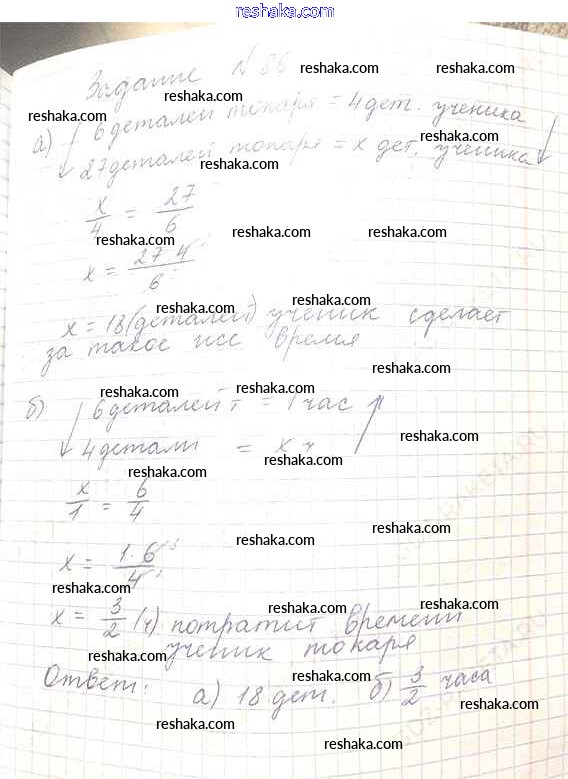 reshaka.com
Задание № 86 reshaka.com reshaka.com
reshaka.com reshaka.com
а) 6 деталей токаря = 4 дет. ученика
reshaka.com reshaka.com
27 деталей токаря = x дет. ученика
reshaka.com
x/4 = 27/6
reshaka.com reshaka.com reshaka.com
x = 27 · 4/6
reshaka.com reshaka.com
x = 18 (деталей) ученик сделает
за такое же время
reshaka.com
reshaka.com reshaka.com
б) 6 деталей т = 1 час
reshaka.com
4 детали = x ч
reshaka.com
x/1 = 6/4
reshaka.com
reshaka.com
x = 1 · 6/4
reshaka.com
reshaka.com reshaka.com
x = 3/2 (ч) потратит времени
ученик токаря
reshaka.com reshaka.com
Ответ: а) 18 дет. б) 3/2 часа
reshaka.com
reshaka.com
reshaka.com
reshaka.com